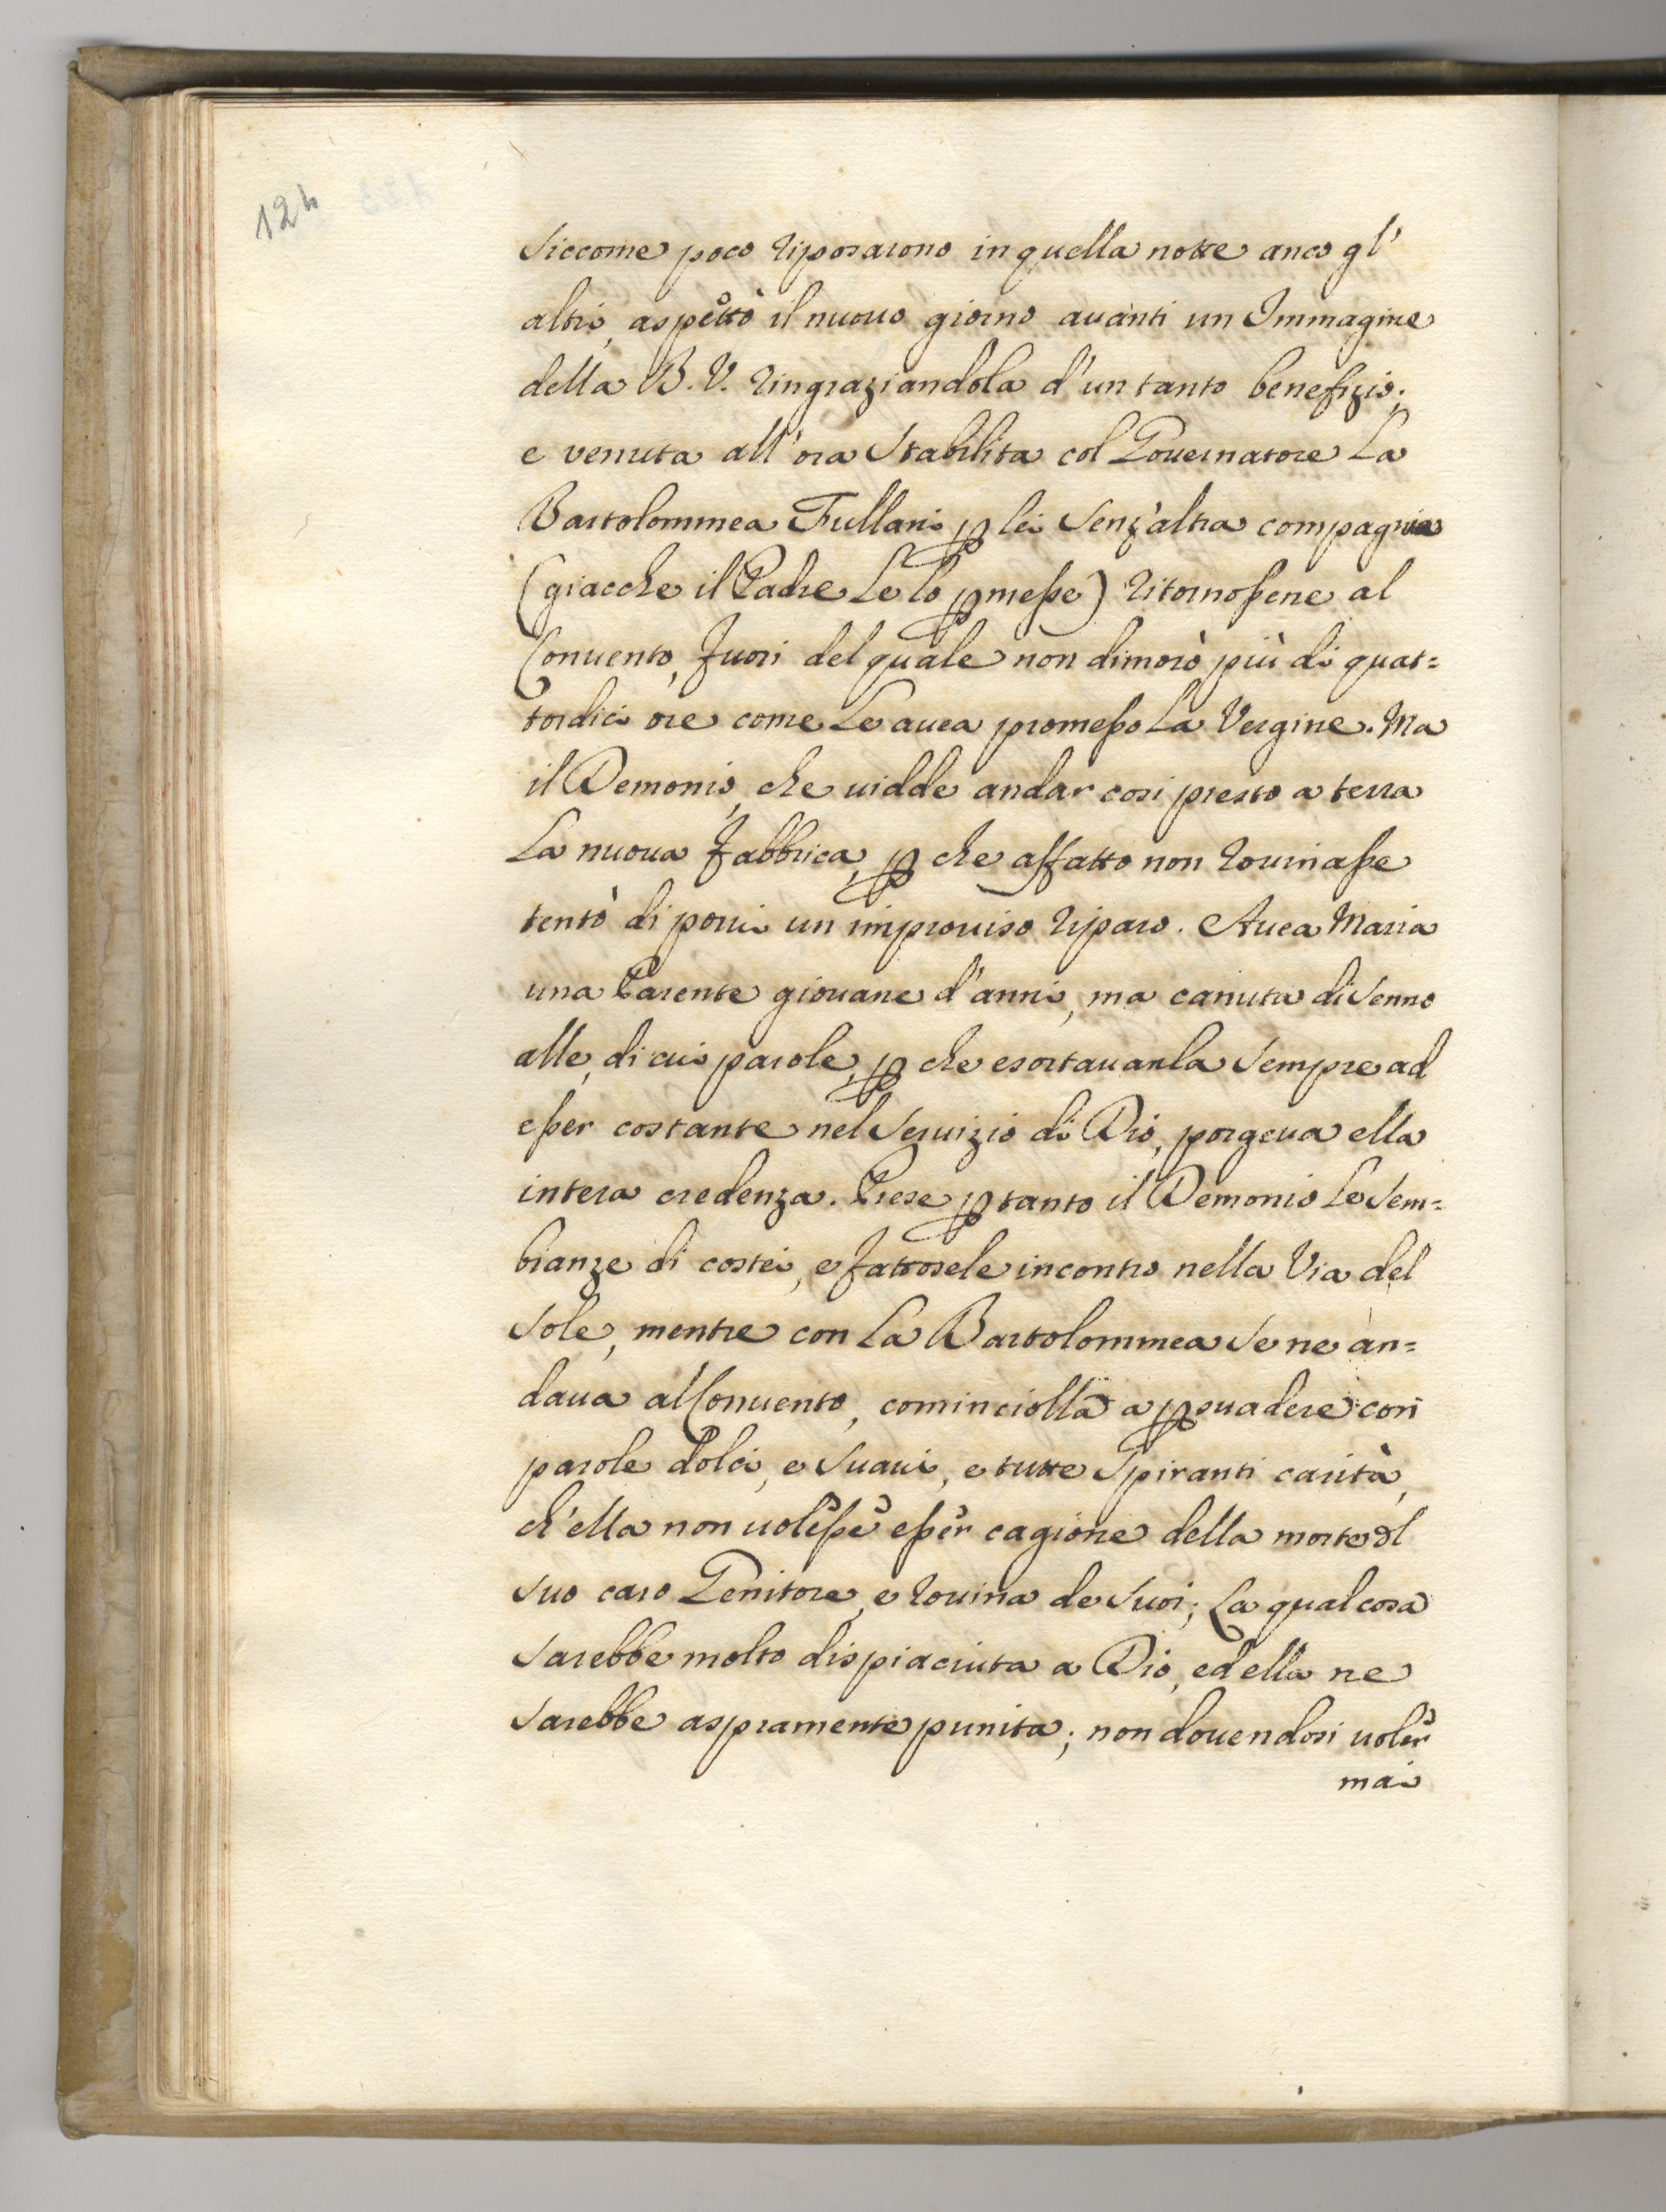 124
Siccome poco riposarono in quella notte anco gl'
altri, aspettò il nuouo giorno auanti un Immagine
della B. V. ringraziandola d'un tanto benefizio;
e venuta all'ora stabilita col Gouernatore la
Bartolommea Fullani ꝑ lei senz'altra compagnia
(giacche il Padre le lo ꝑmesse) ritornossene al
Conuento, fuori del quale non dimorò più di quat=
tordici ore come le auea promesso la Vergine. Ma
il Demonio, che uidde andar così presto a terra
la nuoua fabbrica, ꝑ che affatto non rouinasse
tentò di porui un improuiso riparo. Auea Maria
una Parente giouane d'anni, ma canuta di senno
alle di cui parole, ꝑ che esortauanla sempre ad
esser costante nel seruizio di Dio, porgeua ella
intera credenza. Prese ꝑtanto il Demonio le sem=
bianze di costei, e fattosele incontro nella Via del
Sole, mentre con la Bartolommea se ne an=
daua al Conuento, cominciolla a ꝑsuadere con
parole dolci, e suaui, e tutte spiranti carità,
ch'ella non uolesse esser cagione della morte dl
suo caro Genitore, e rouina de suoi; la qual cosa
sarebbe molto dispiaciuta a Dio, ed ella ne
sarebbe aspramente punita; non douendosi uoler
mai